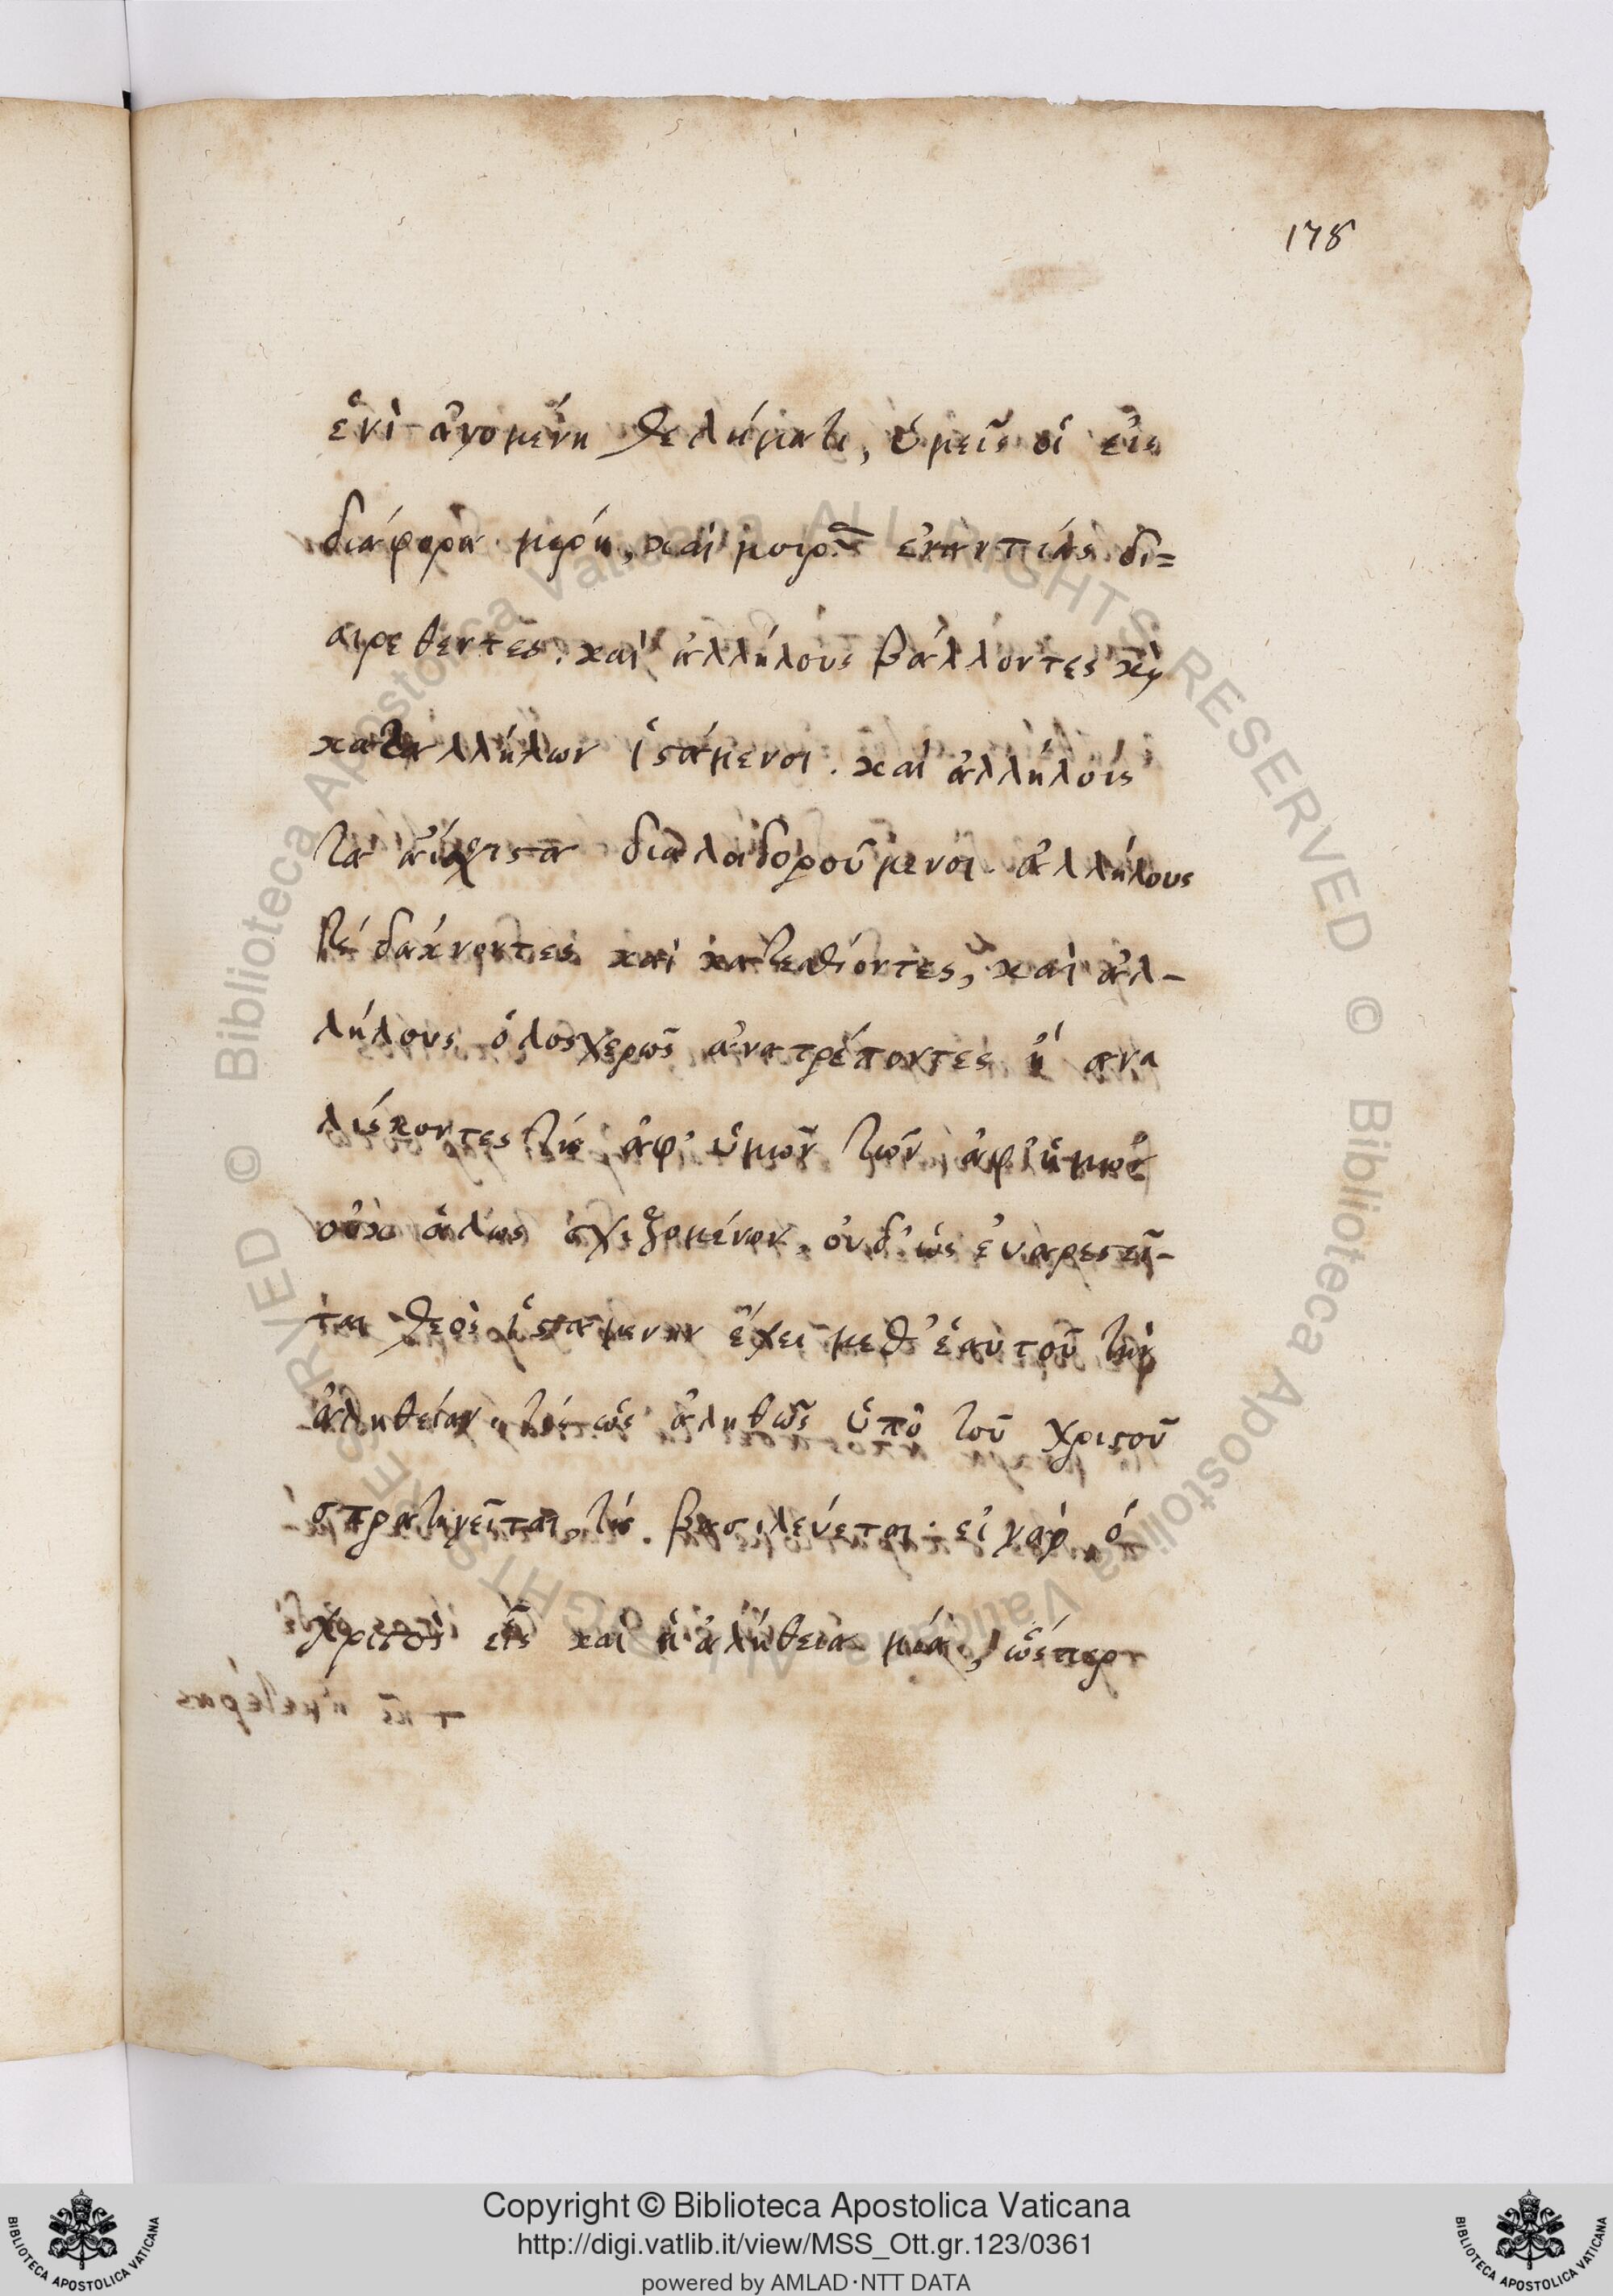 178
ἑνὶ ἀγομένη θελήματι, ὑμεῖς οἱ εἰς
διάφορα μέρη, καὶ μοίρας ἐναντίας δι=
αιρεθεντες. καὶ ἀλλήλους βάλλοντες κỳ
κατἀλλήλων ἱστάμενοι. καὶ ἀλλήλοις
τὰ αἴσχιστα διαλοιδορούμενοι ἀλλήλους
τὲ δάκνοντες καὶ κατεσθίοντες, καὶ ἀλ-
λήλους ὁλοσχερῶς ἀνατρέποντες ἢ ανα
λίσκοντες τίς ἀφ' ὑμῶν τῶν ἀφ' ἡμῶν
οὐκ ἄλλως σχιζομένων, ουδ' ὡς ἐυαρεστεῖ-
ται θεὸς ἱσταμένων ἔχει μεθ' ἑαυτοῦ τὴν
ἀλήθειαν. τίς ὡς ἀληθῶς ὑπὸ τοῦ χριστοῦ
στρατηγεῖται, τίς βασιλεύεται· εἰ γὰρ ὁ
χριστὸς εἷς καὶ ἡ ἀλήθεια μία, ὥσπερ
Copyright © Biblioteca Apostolica Vaticana
http://digi.vatlib.it/view/MSS_Ott.gr.123/0361
powered by AMLAD·NTT DATA
BIBLIOTECA APOSTOLICA VATICANA
BIBLIOTECA APOSTOLICA VATICANA
© Biblioteca Apostolica Vaticana ALL RIGHTS RESERVED © Biblioteca Apostolica Vaticana ALL RIGHTS RESERVED